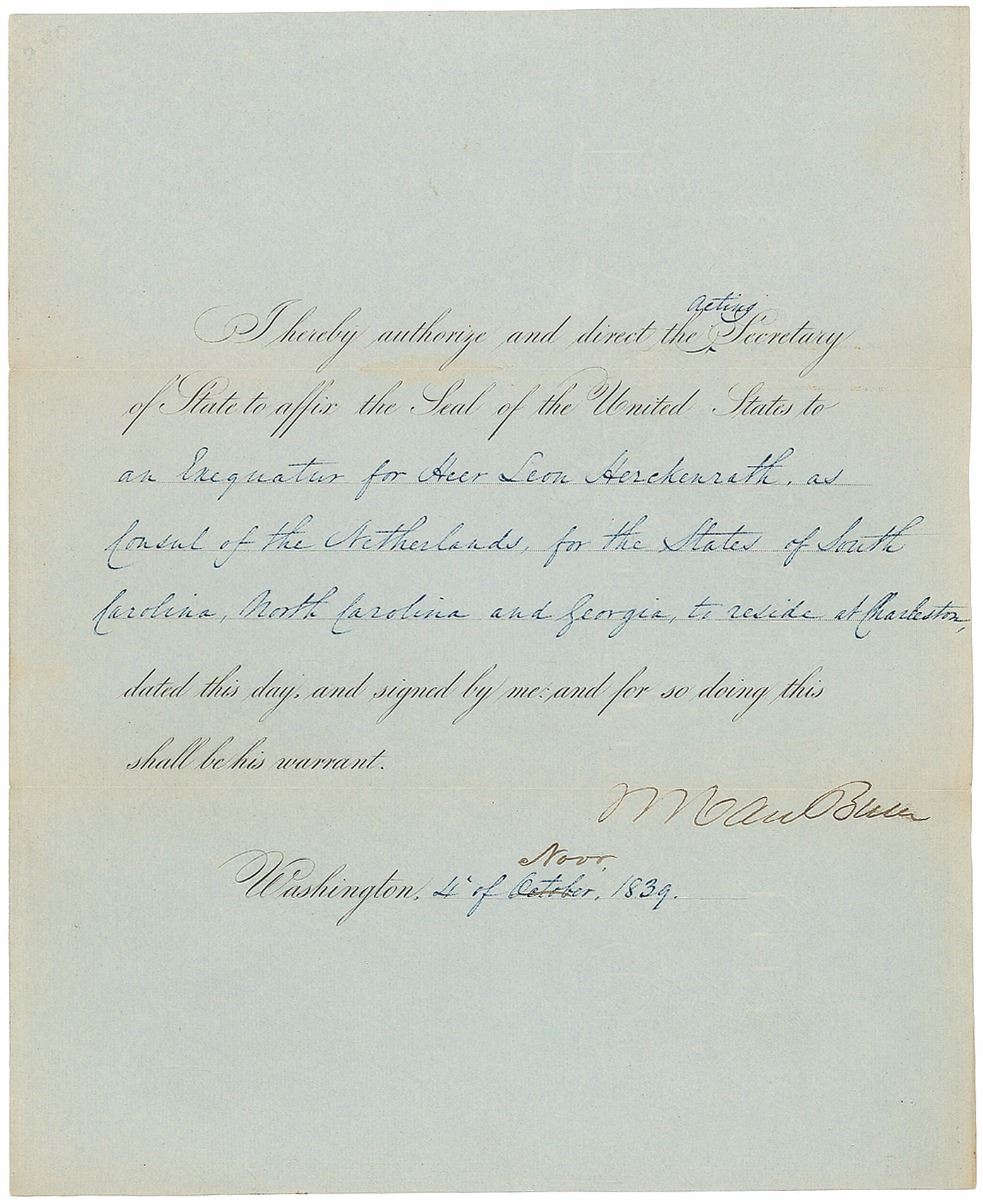 acting
I hereby authorize and direct the ‸ Secretary
of State to affix the Seal of the United States to
an Exequatur for Heer Leon Herckenrath, as
Consul of the Netherlands, for the States of South
Carolina, North Carolina and Georgia, to reside at Charleston,
dated this day, and signed by me: and for so doing this
shall be his warrant.
M Van Buren
Novr
Washington, 4th of October, 1839.